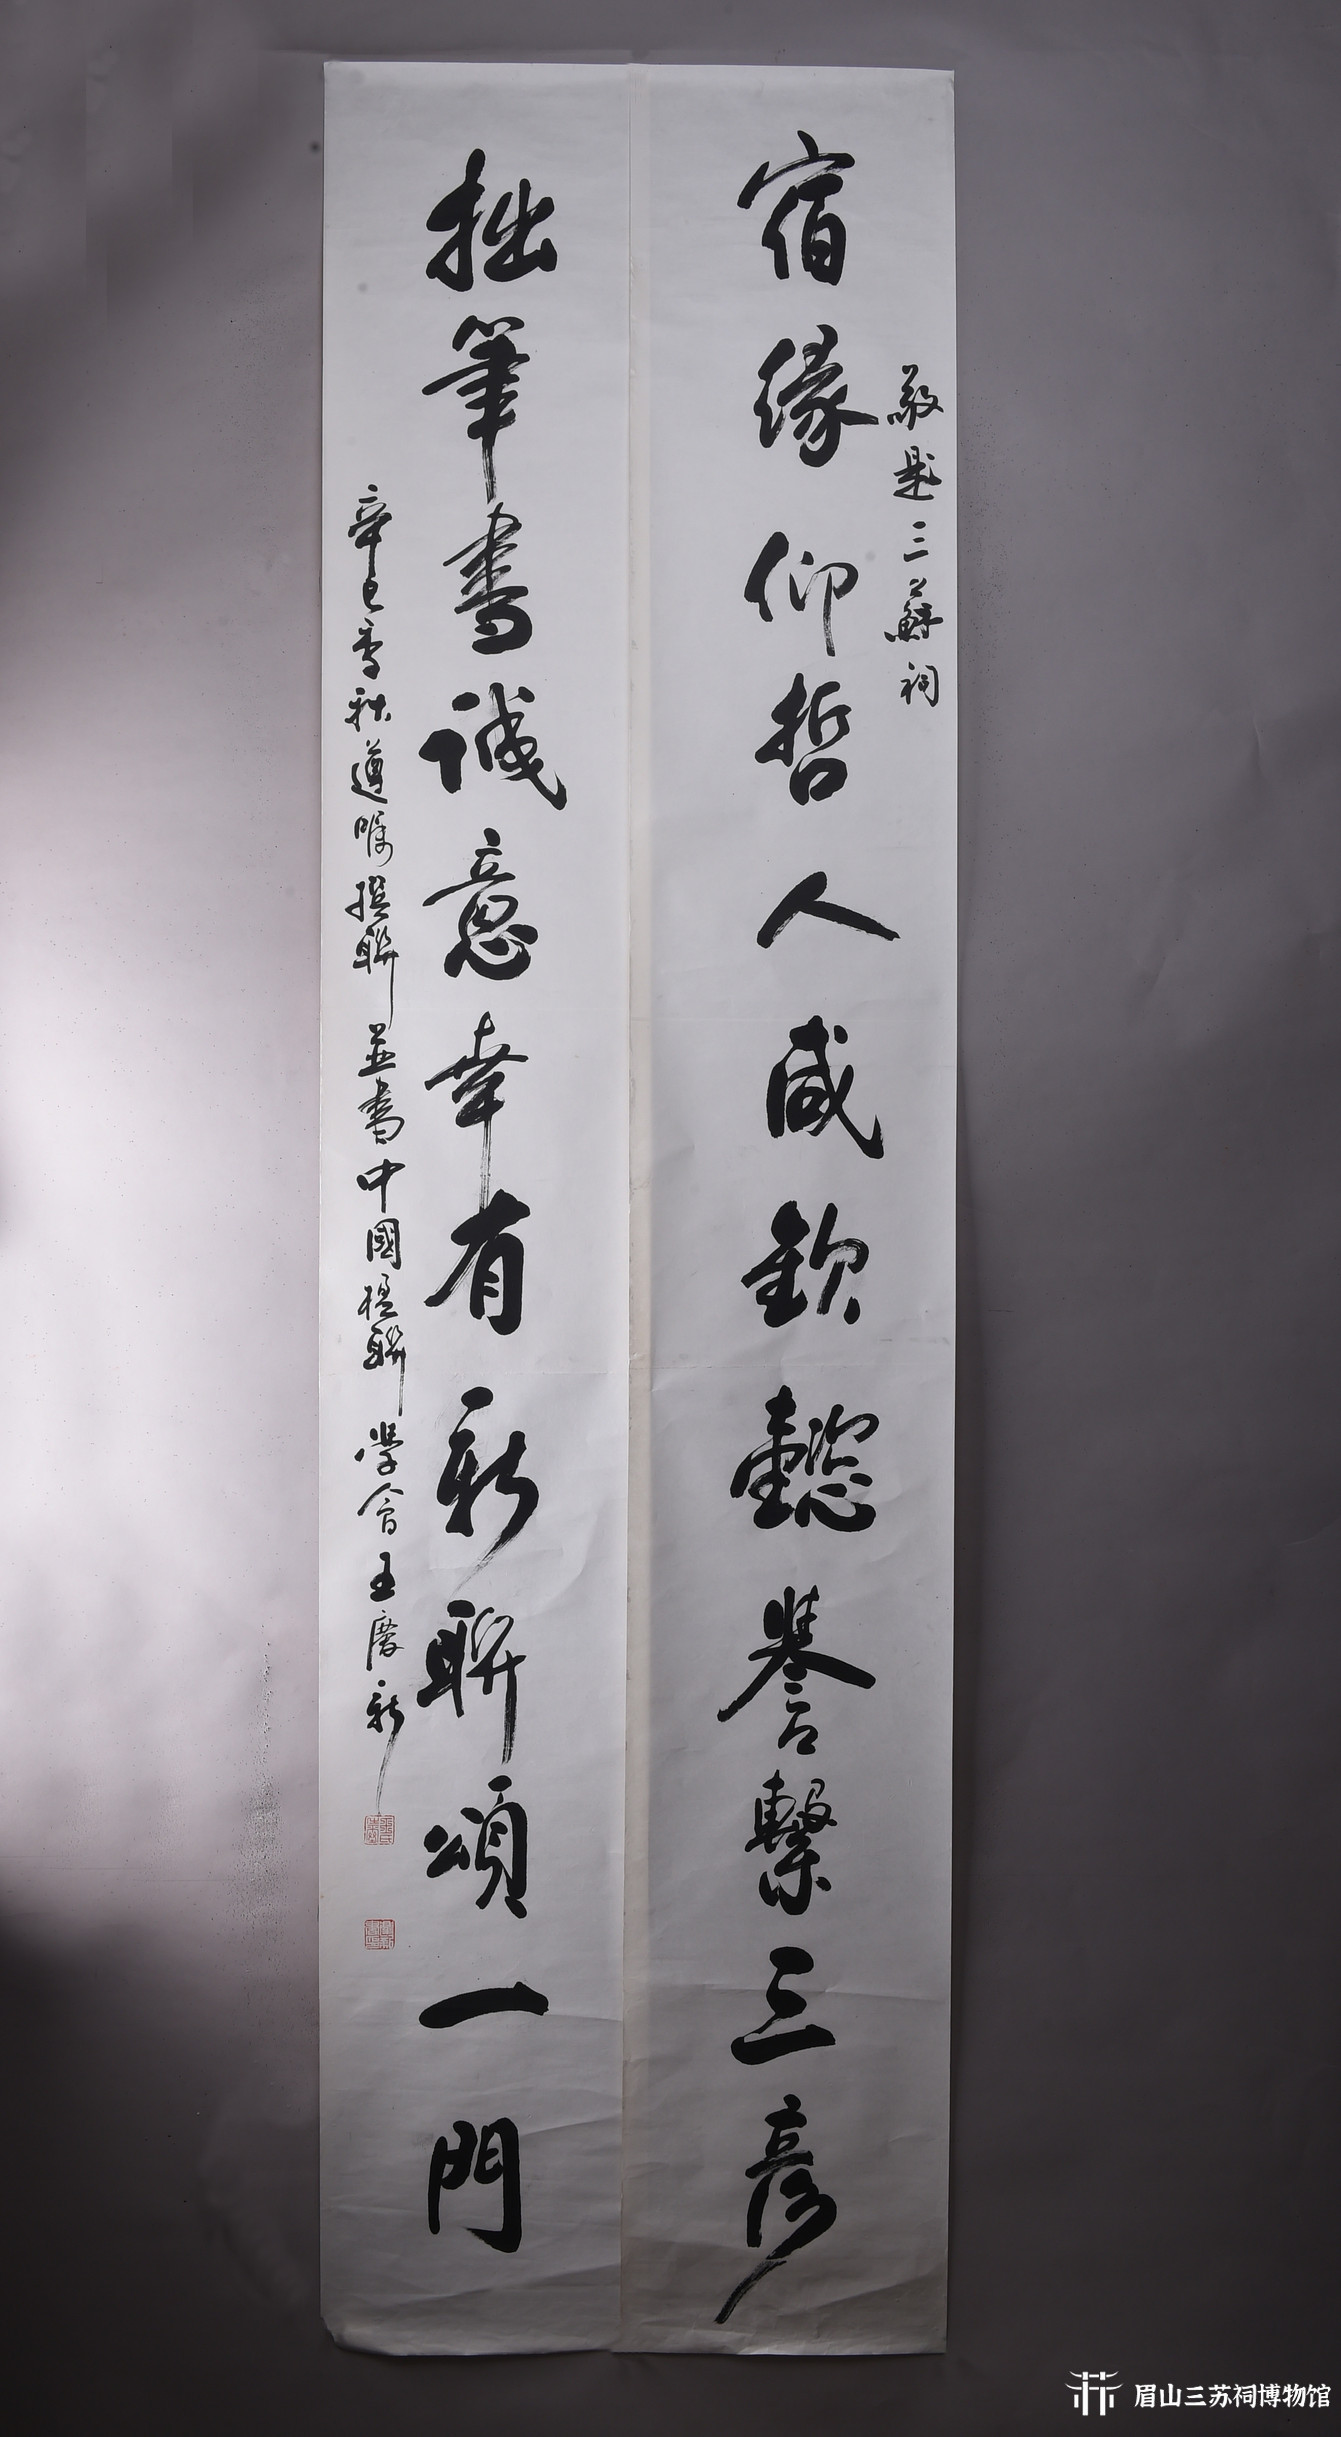 敬題三蘇祠
宿緣仰哲人咸欽懿譽繫三彥
拙筆書誠意幸有新聯頌一門
辛巳季秋遵嘱撰聯並書中國楹聯學會王慶新
眉山三苏祠博物馆